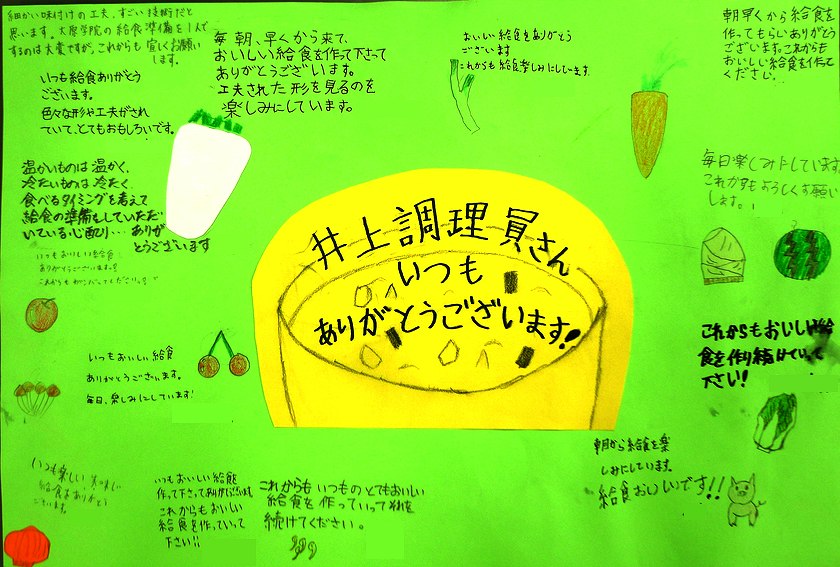 細かい味付けの工夫、すごい技術だと
思います。大原学院の給食準備を1人で
するのは大変ですが、これからも宜しくお願い
します。
毎朝、早くから来て、
おいしい給食を作って下さって
ありがとうございます。
工夫された形を見るのを
楽しみにしています。
おいしい給食をありがとう
ございます
これからも給食楽しみにしています。
朝早くから給食を
作ってもらいありがとう
ございます。これからも
おいしい給食を作って
ください。
いつも給食ありがとう
ございます。
色々な形や工夫がされ
ていて、とてもおもしろいです。
温かいものは温かく、
冷たいものは冷たく
食べるタイミングを考えて
給食の準備をしていただ
いている心配り…ありが
とうございます
毎日楽しみにしています。
これからもよろしくお願い
します。
井上調理員さん
いつも
ありがとうございます!
いつもおいしい給食
ありがとうございます。
いつもおいしい給食
ありがとうございます。
毎日、楽しみにしています!
これからもおいしい給
食を作り続けていって
下さい!
いつも楽しい美味しい
給食をありがとう
ございます。
いつもおいしい給食
作って下さってありがとうございます
これからもおいしい
給食を作っていって
下さい!!
これからもいつものとてもおいしい
給食を作っていってそれを
続けてください。
朝から給食を楽
しみにしています。
給食おいしいです!!